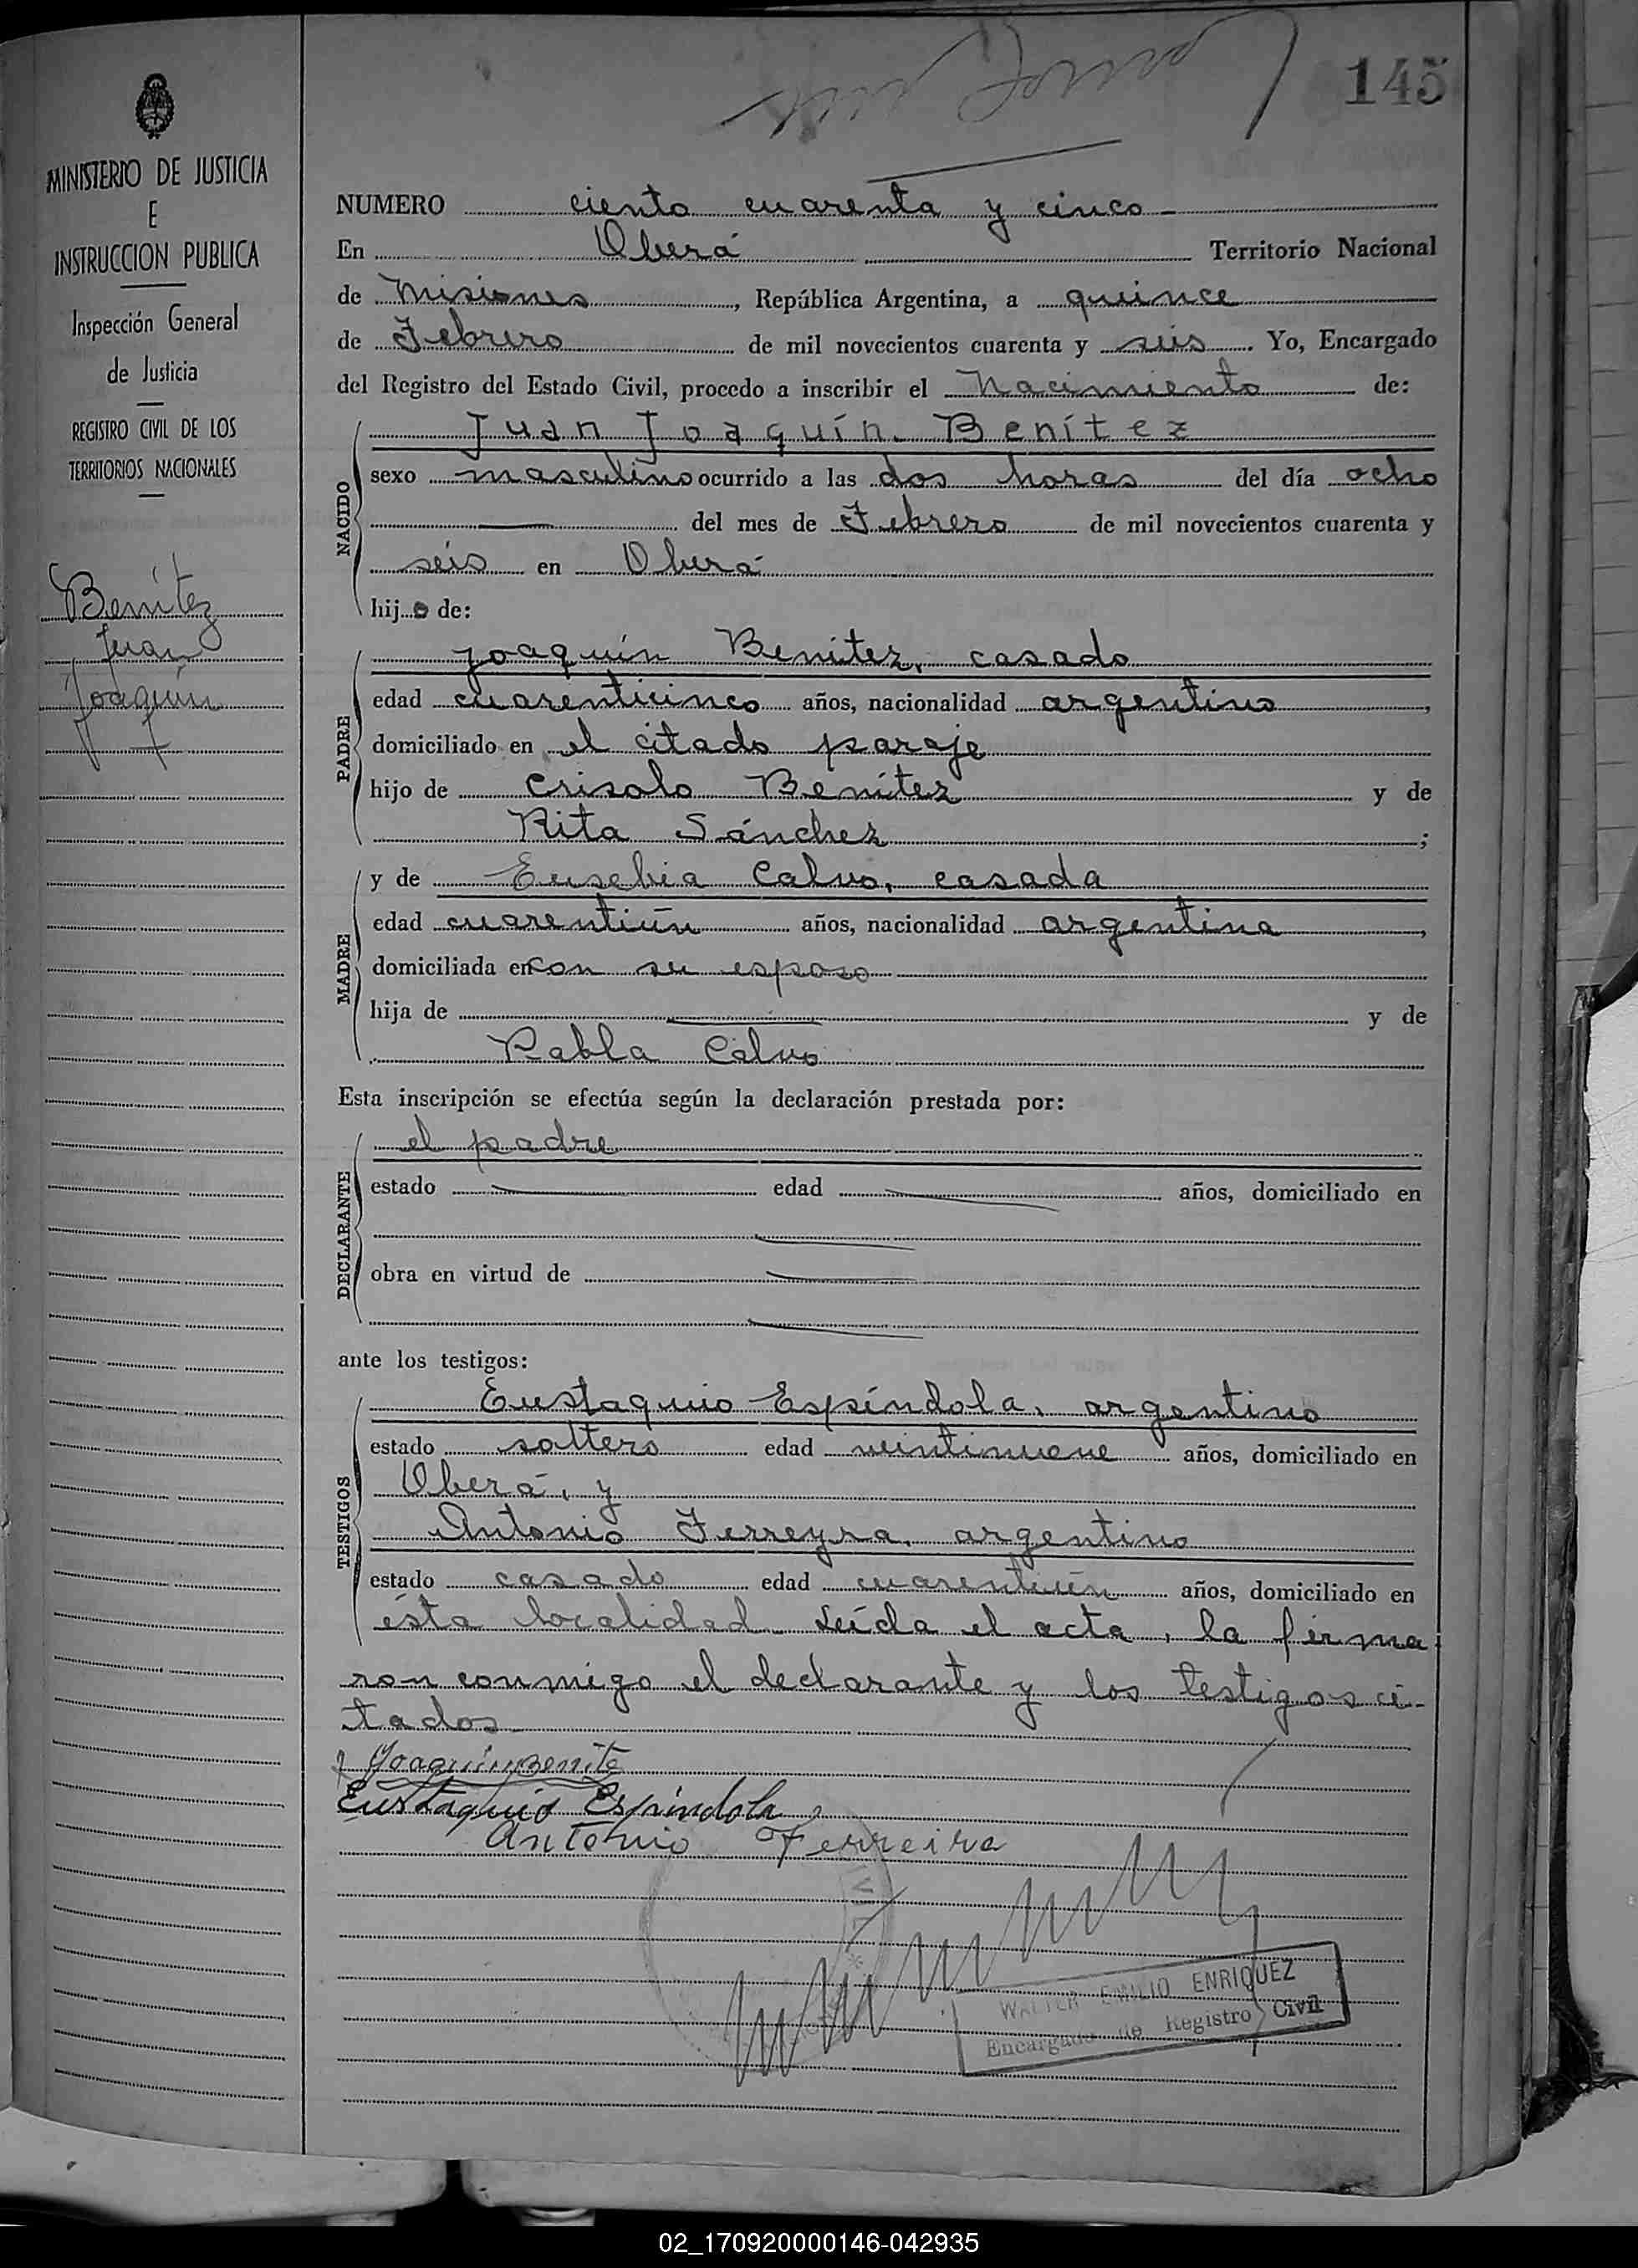 145
MINISTERIO DE JUSTICIA
E
INSTRUCCION PUBLICA
Inspección General
de Justicia
REGISTRO CIVIL DE LOS
TERRITORIOS NACIONALES
Benítez
Juan
Joaquín
NUMERO ciento cuarenta y cinco
En Oberá Territorio Nacional
de Misiones, República Argentina, a quince
de Febrero de mil novecientos cuarenta y seis. Yo, Encargado
del Registro del Estado Civil, procedo a inscribir el Nacimiento de:
NACIDO
Juan Joaquín Benítez
sexo masculino ocurrido a las dos horas del día ocho
del mes de Febrero de mil novecientos cuarenta y
seis en Oberá
hijo de:
PADRE
Joaquín Benítez, casado
edad cuarenticinco años, nacionalidad argentino,
domiciliado en el citado paraje
hijo de Crisolo Benítez y de
Rita Sánchez;
MADRE
y de Eusebia Calvo, casada
edad cuarentiún años, nacionalidad argentina,
domiciliada en con su esposo
hija de y de
Pabla Calvo
Esta inscripción se efectúa según la declaración prestada por:
DECLARANTE
el padre
estado edad años, domiciliado en
obra en virtud de
ante los testigos:
TESTIGOS
Eustaquio Espíndola, argentino
estado soltero edad veintinueve años, domiciliado en
Oberá, y
Antonio Ferreyra, argentino
estado casado edad cuarentiún años, domiciliado en
ésta localidad. Leída el acta, la firma
ron conmigo el declarante y los testigos ci-
tados
Joaquin Benite
Eustaquio Espíndola
Antonio Ferreira
WALTER EMILIO ENRIQUEZ
Encargado de Registro Civil
02_170920000146-042935